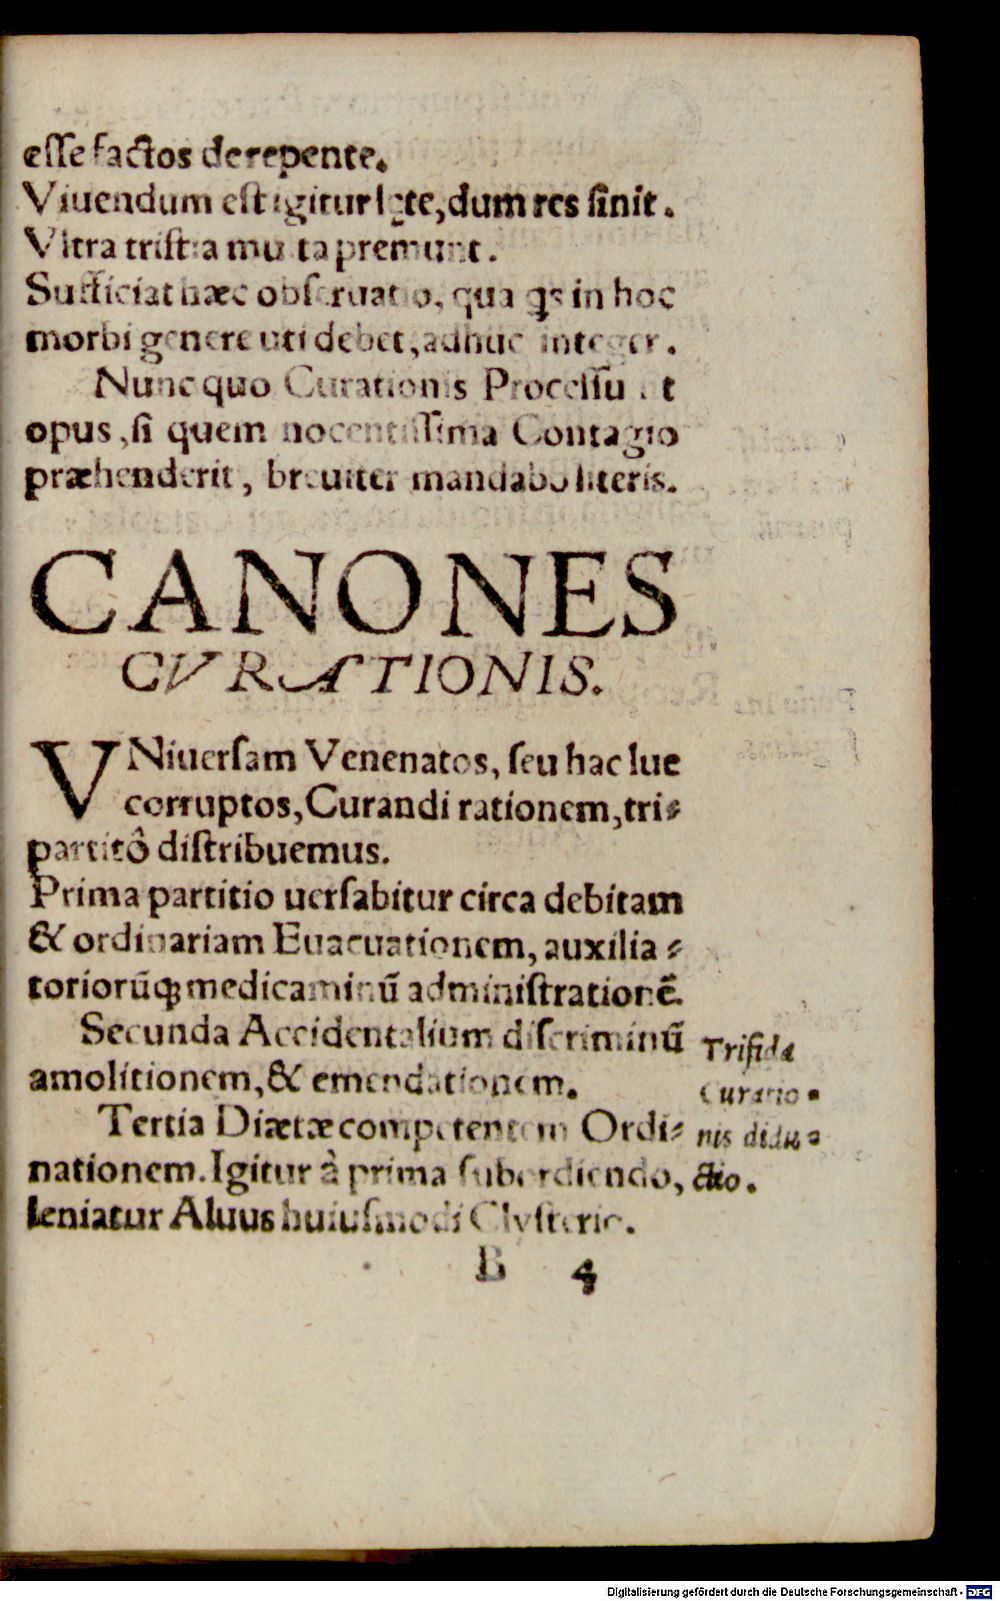 esse factos derepente.
Viuendum est igitur lęte, dum res sinit.
Vltra tristia multa premunt.
Sufficiat hæc obseruatio, qua qs in hoc
morbi genere uti debet, adhuc integer.
Nunc quo Curationis Processu sit
opus, si quem nocentissima Contagio
præhenderit, breuiter mandabo literis.
CANONES
CVRATIONIS.
VNiuersam Venenatos, seu hac lue
corruptos, Curandi rationem, tri-
partitô distribuemus.
Prima partitio uersabitur circa debitam
& ordinariam Euacuationem, auxilia-
toriorūq; medicaminū administrationē.
Secunda Accidentalium discriminū
amolitionem, & emendationem.
Tertia Diætæ competentem Ordi-
nationem. Igitur à prima subordiendo,
leniatur Aluus huiusmodi Clysterio.
Trifida
Curatio-
nis didu-
ctio.
B 4
Digitalisierung gefördert durch die Deutsche Forschungsgemeinschaft - DFG